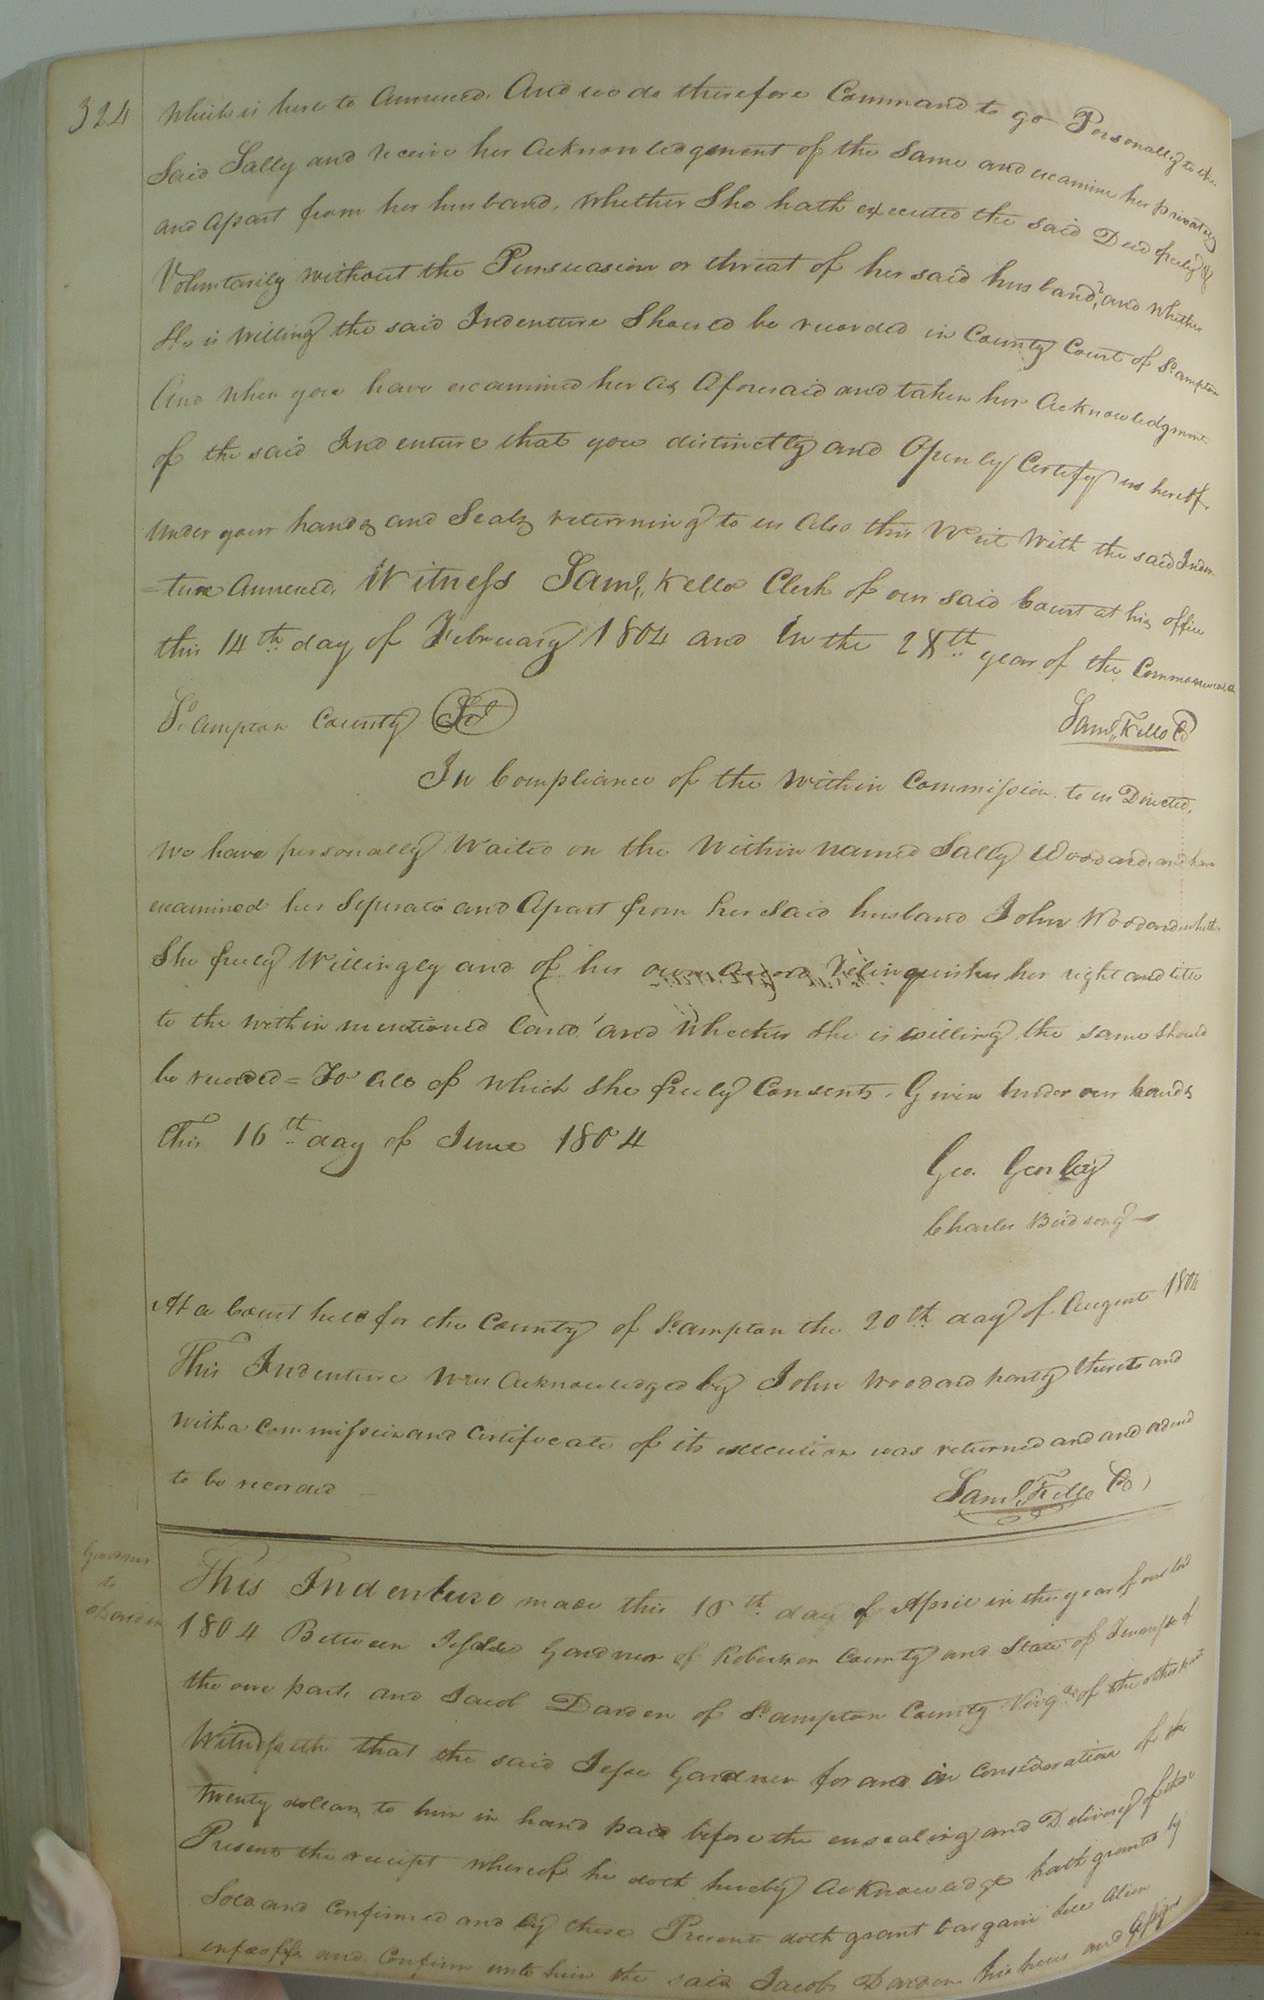 324
which is here to annexed. And we do therefore Command to go Personally to the
Said Sally and receive her acknowledgement of the Same and examine her privately
and apart from her husband, whether She hath executed the said Deed freely &
Voluntarily without the Pursuasion or threat of her said husband, and whether
She is willing the said Indenture Should be recorded in County Court of So.ampton
And when you have examined her as Aforesaid and taken her Acknowledgment
of the said Indenture that you distinctly and Openly Certify us hereof
Under your hands and Seals returning to us Also this Writ With the said Inden
=ture annexed. Witness Saml. Kello Clerk of our said Court at his office
this 14th. day of February 1804 and in the 28th. year of the Commonwealth
So.ampton County Sct
Saml. Kello CC
In Compliance of the within Commission to us Directed,
We have personally Waited on the Within named Sally Woodard, and have
examined her Seperate and Apart from her Said husband John Woodard whether
She freely Willingly and of her own accord relinquishes her right and title
to the within mentioned Land and Whether she is willing the same should
be recorded = To all of which She freely Consents. Given under our hands
This 16th. day of June 1804
Geo. Gurley
Charles Birdsong
At a Court held for the County of So.ampton the 20th. day of August 1804
This Indenture was Acknowledged by John Woodard party thereto and
with a commission and Certificate of its execution was returned and and ordered
to be recorded
Saml. Kello CC
Gardner
to
Darden
This Indenture made this 18th. day of April in the year of our lord
1804 Between Jesse Gardner of Robertson County and State of Tenessee of
the one part, and Jacob Darden of So.ampton County Virga. of the other part
Witnesseth that the said Jesse Gardner for and in Consideration of the
twenty dollars to him in hand paid before the ensealing and Delivery of these
Presents the receipt whereof he doth hereby acknowledge hath granted by
Sold and Confirmed and by these Presents doth grant bargain Sell Alien
enfeoffe and Confirm unto him the said Jacob Darden his heirs and Assigns